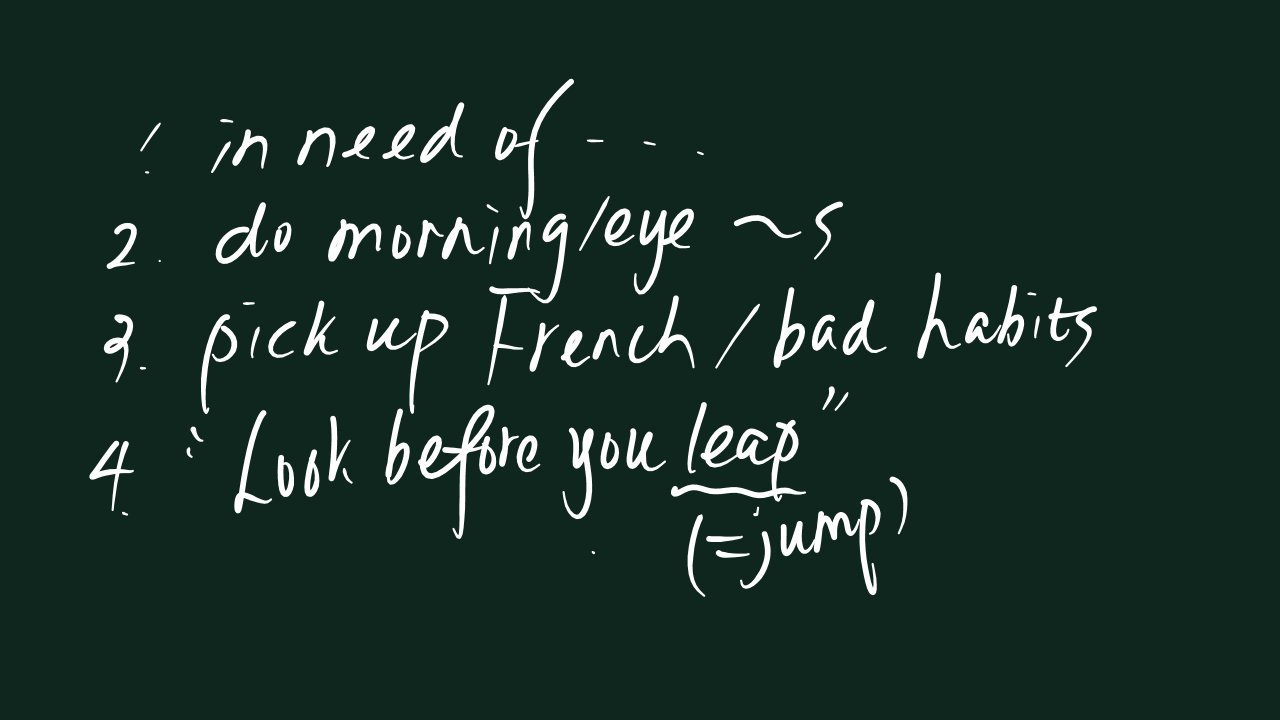 1. in need of - - - .
2. do morning/eye ~s
3. pick up French / bad habits
4. "Look before you leap"
(=jump)